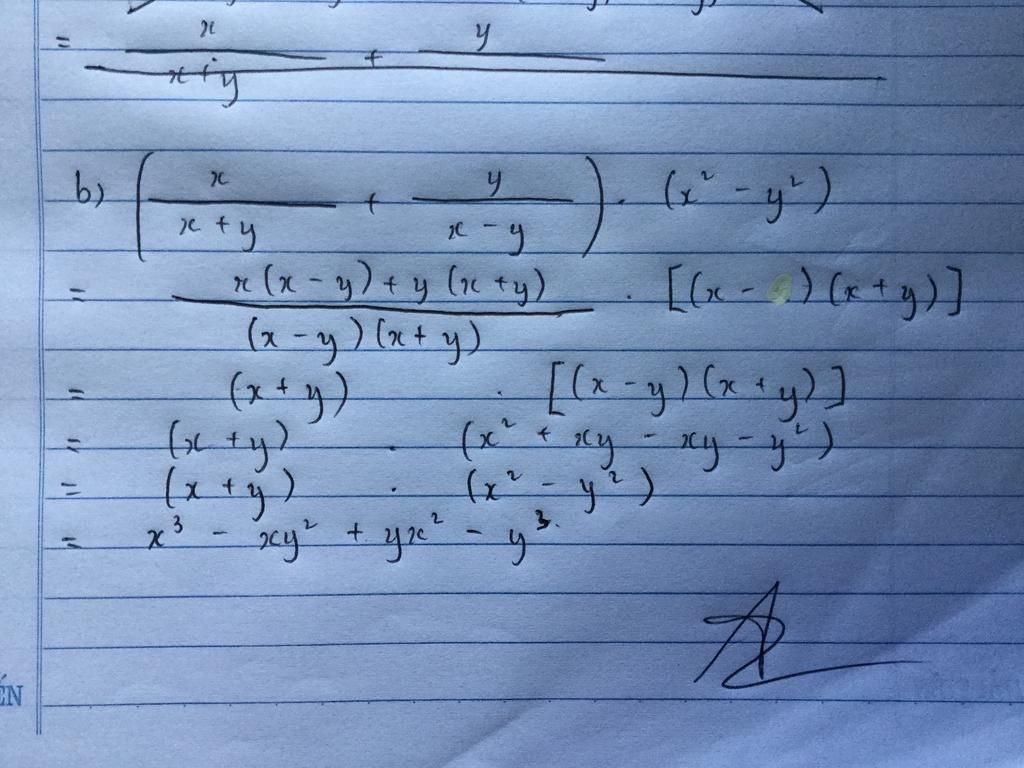 = x/(x + y) + y/
b) (x/(x + y) + y/(x - y)) . (x² - y²)
= (x(x - y) + y(x + y))/((x - y)(x + y)) . [(x - )(x + y)]
= (x + y) . [(x - y)(x + y)]
= (x + y) . (x² + xy - xy - y²)
= (x + y) . (x² - y²)
= x³ - xy² + yx² - y³.
ÉN